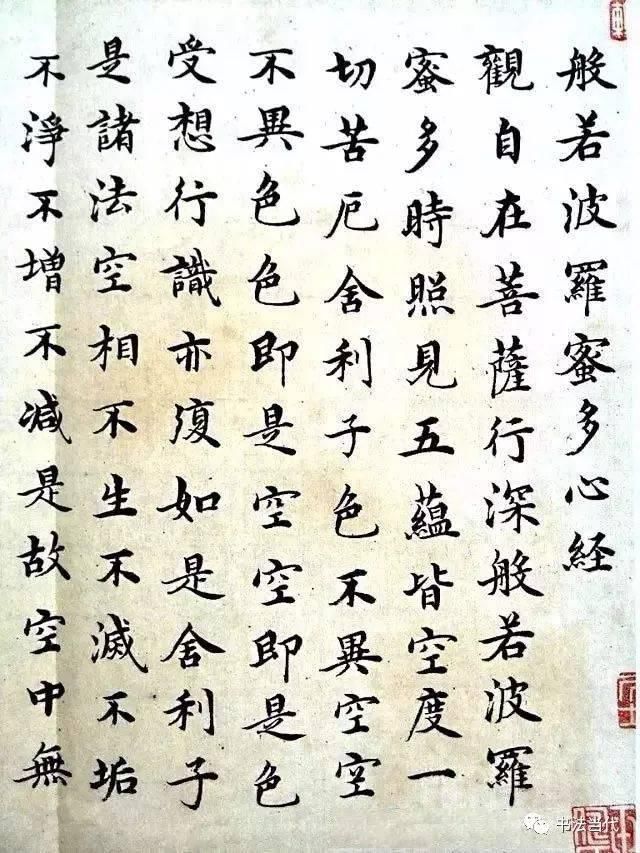 般若波羅蜜多心経
觀自在菩薩行深般若波羅
蜜多時照見五蘊皆空度一
切苦厄舍利子色不異空空
不異色色即是空空即是色
受想行識亦復如是舍利子
是諸法空相不生不滅不垢
不淨不增不減是故空中無
书法当代